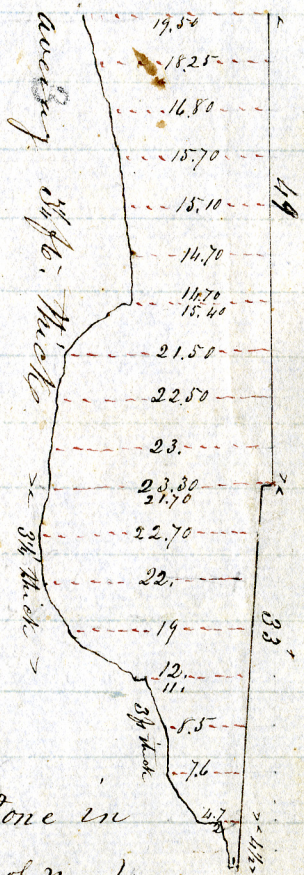 19.50
18.25
16.80
15.70
15.10
14.70
14.70
15.40
21.50
22.50
23.
23.30
21.70
22.70
22.
19
12.
11.
8.5
7.6
4.7
2
49
33
4½
3¼ ft. Thick
3¼ thick
3¼ thick
tone in